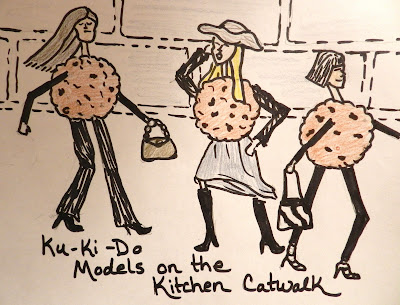 Ku-Ki-Do
Models on the
Kitchen Catwalk